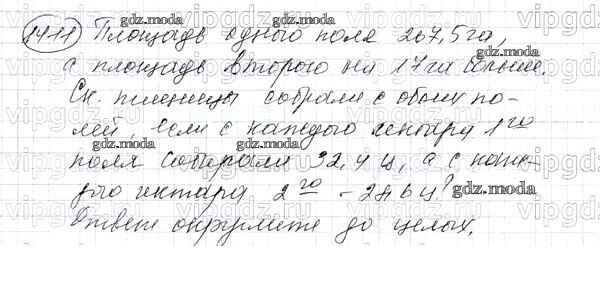 1411 Площадь одного поля 267,5 га,
а площадь второго на 17 га больше.
Ск. пшеницы собрали с обоих по-
лей, если с каждого гектара 1го
поля собирали 32,4 ц, а с каж-
дого гектара 2го - 28,6 ц?
Ответ округлите до целых.
gdz.moda
gdz.moda
gdz.moda
gdz.moda
gdz.moda
gdz.moda
gdz.moda
gdz.moda
gdz.moda